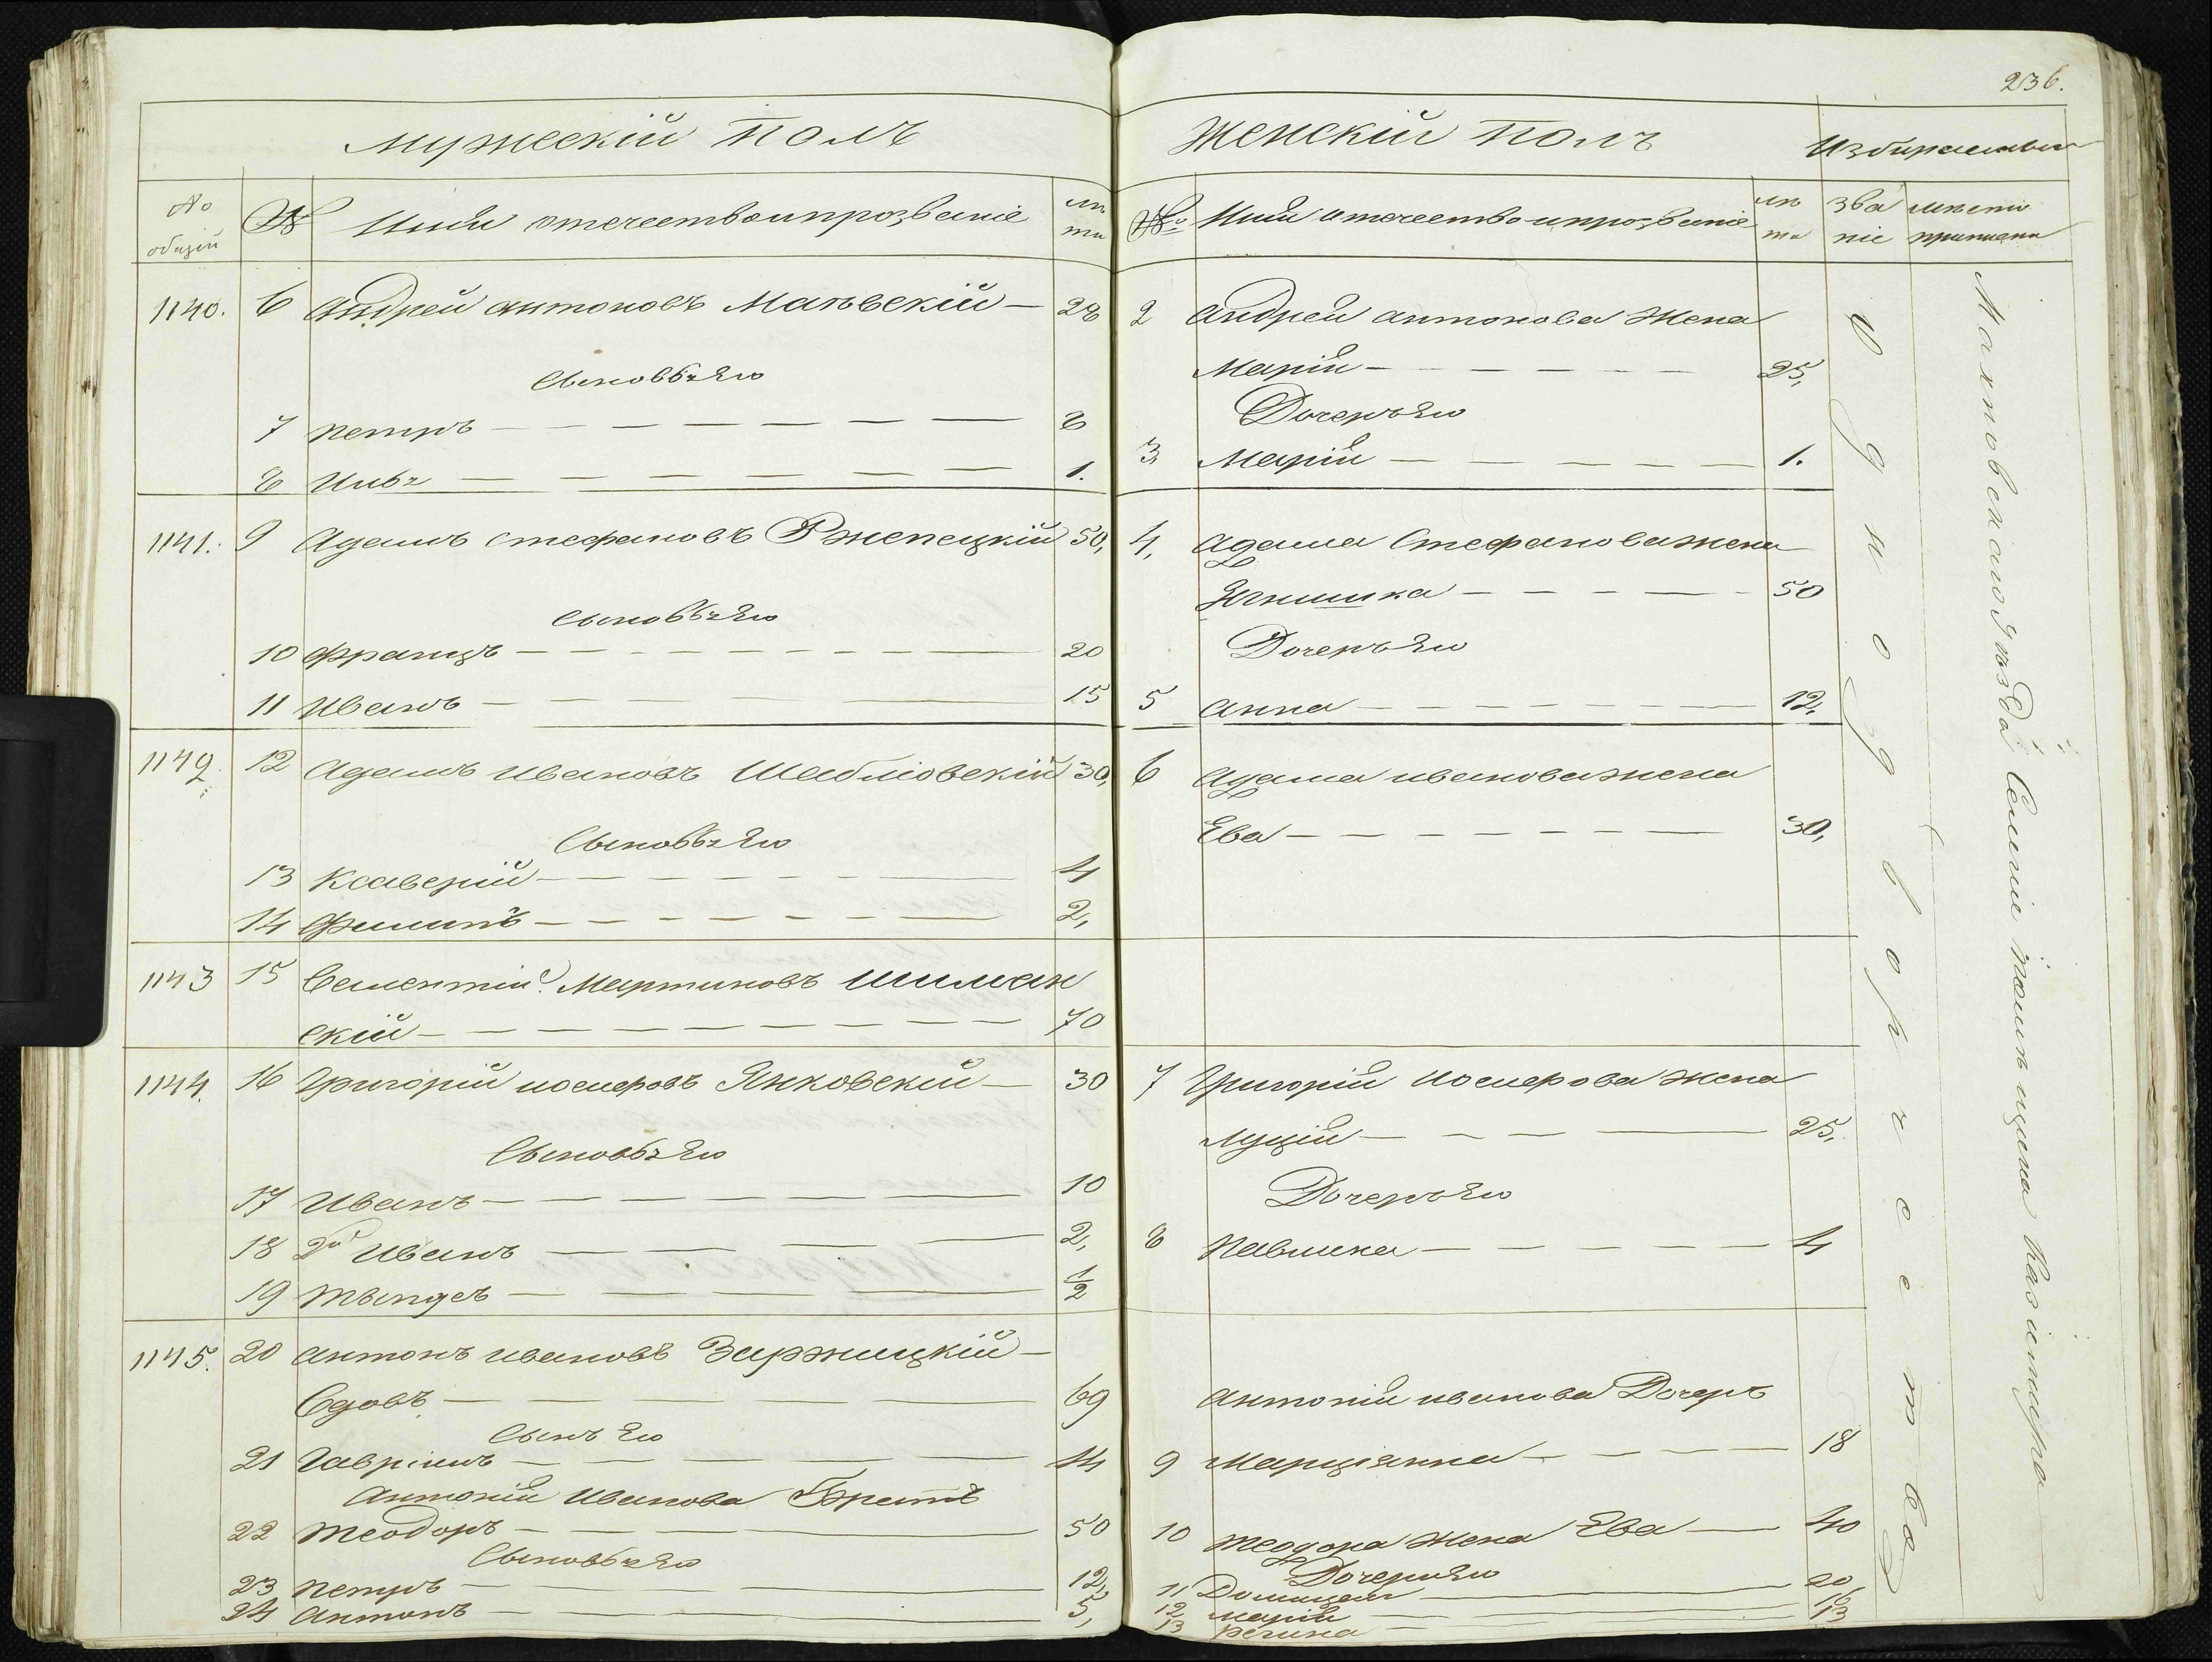 236.
Мужескій Полъ
№ общій
№
Имя отечество и прозваніе
лѣта
1140. 6 Андрей Антоновъ Маньвскій — 28
Сыновья Его
7 Петръ — 8
8 — 1.
1141. 9 Адамъ Стефановъ Ржепецкій 50,
Сыновья Его
10 Францъ — 20
11 Иванъ — 15
1142. 12 Адамъ Ивановъ Шабліовскій 30,
Сыновья Его
13 Ксаверій — 4
14 Филипъ — 2,
1143 15 Мартиновъ Шиман
скій — 70
1144. 16 Григорій Іосифовъ Янковскій — 30
Сыновья Его
17 Иванъ — 10
18 2й Иванъ — 2,
19 — 1/2
1145. 20 Антонъ Ивановъ Заржицкій —
Вдовъ — 69
Сынъ Его
21 Гавріилъ — 14
Антонія Иванова Братъ
22 Теодоръ — 50
Сыновья Его
23 Петръ — 12,
24 Антонъ — 5,
Женскій Полъ
Избираемыя
№
Имя отечество и прозваніе
лѣта
званіе
мѣсто приписки
2 Андрея Антонова Жена
Марія — 25,
Дочерь Его
3. Марія — 1.
4, Адама Стефанова жена
50
Дочерь Его
5 Анна — 12,
6 Адама Иванова жена
Ева — 30,
7 Григорія Іосифова Жена
Луція — 25,
Дочерь Его
8 — 4
Антонія Иванова Дочерь
9 Марціянна — 18
10 Теодора Жена Ева — 40
Дочери Его
11 — 20,
12 Марія — 16
13 Регина — 13
Однодворчество
Махновскаго уѣзда Селеніе помѣщика Казимира